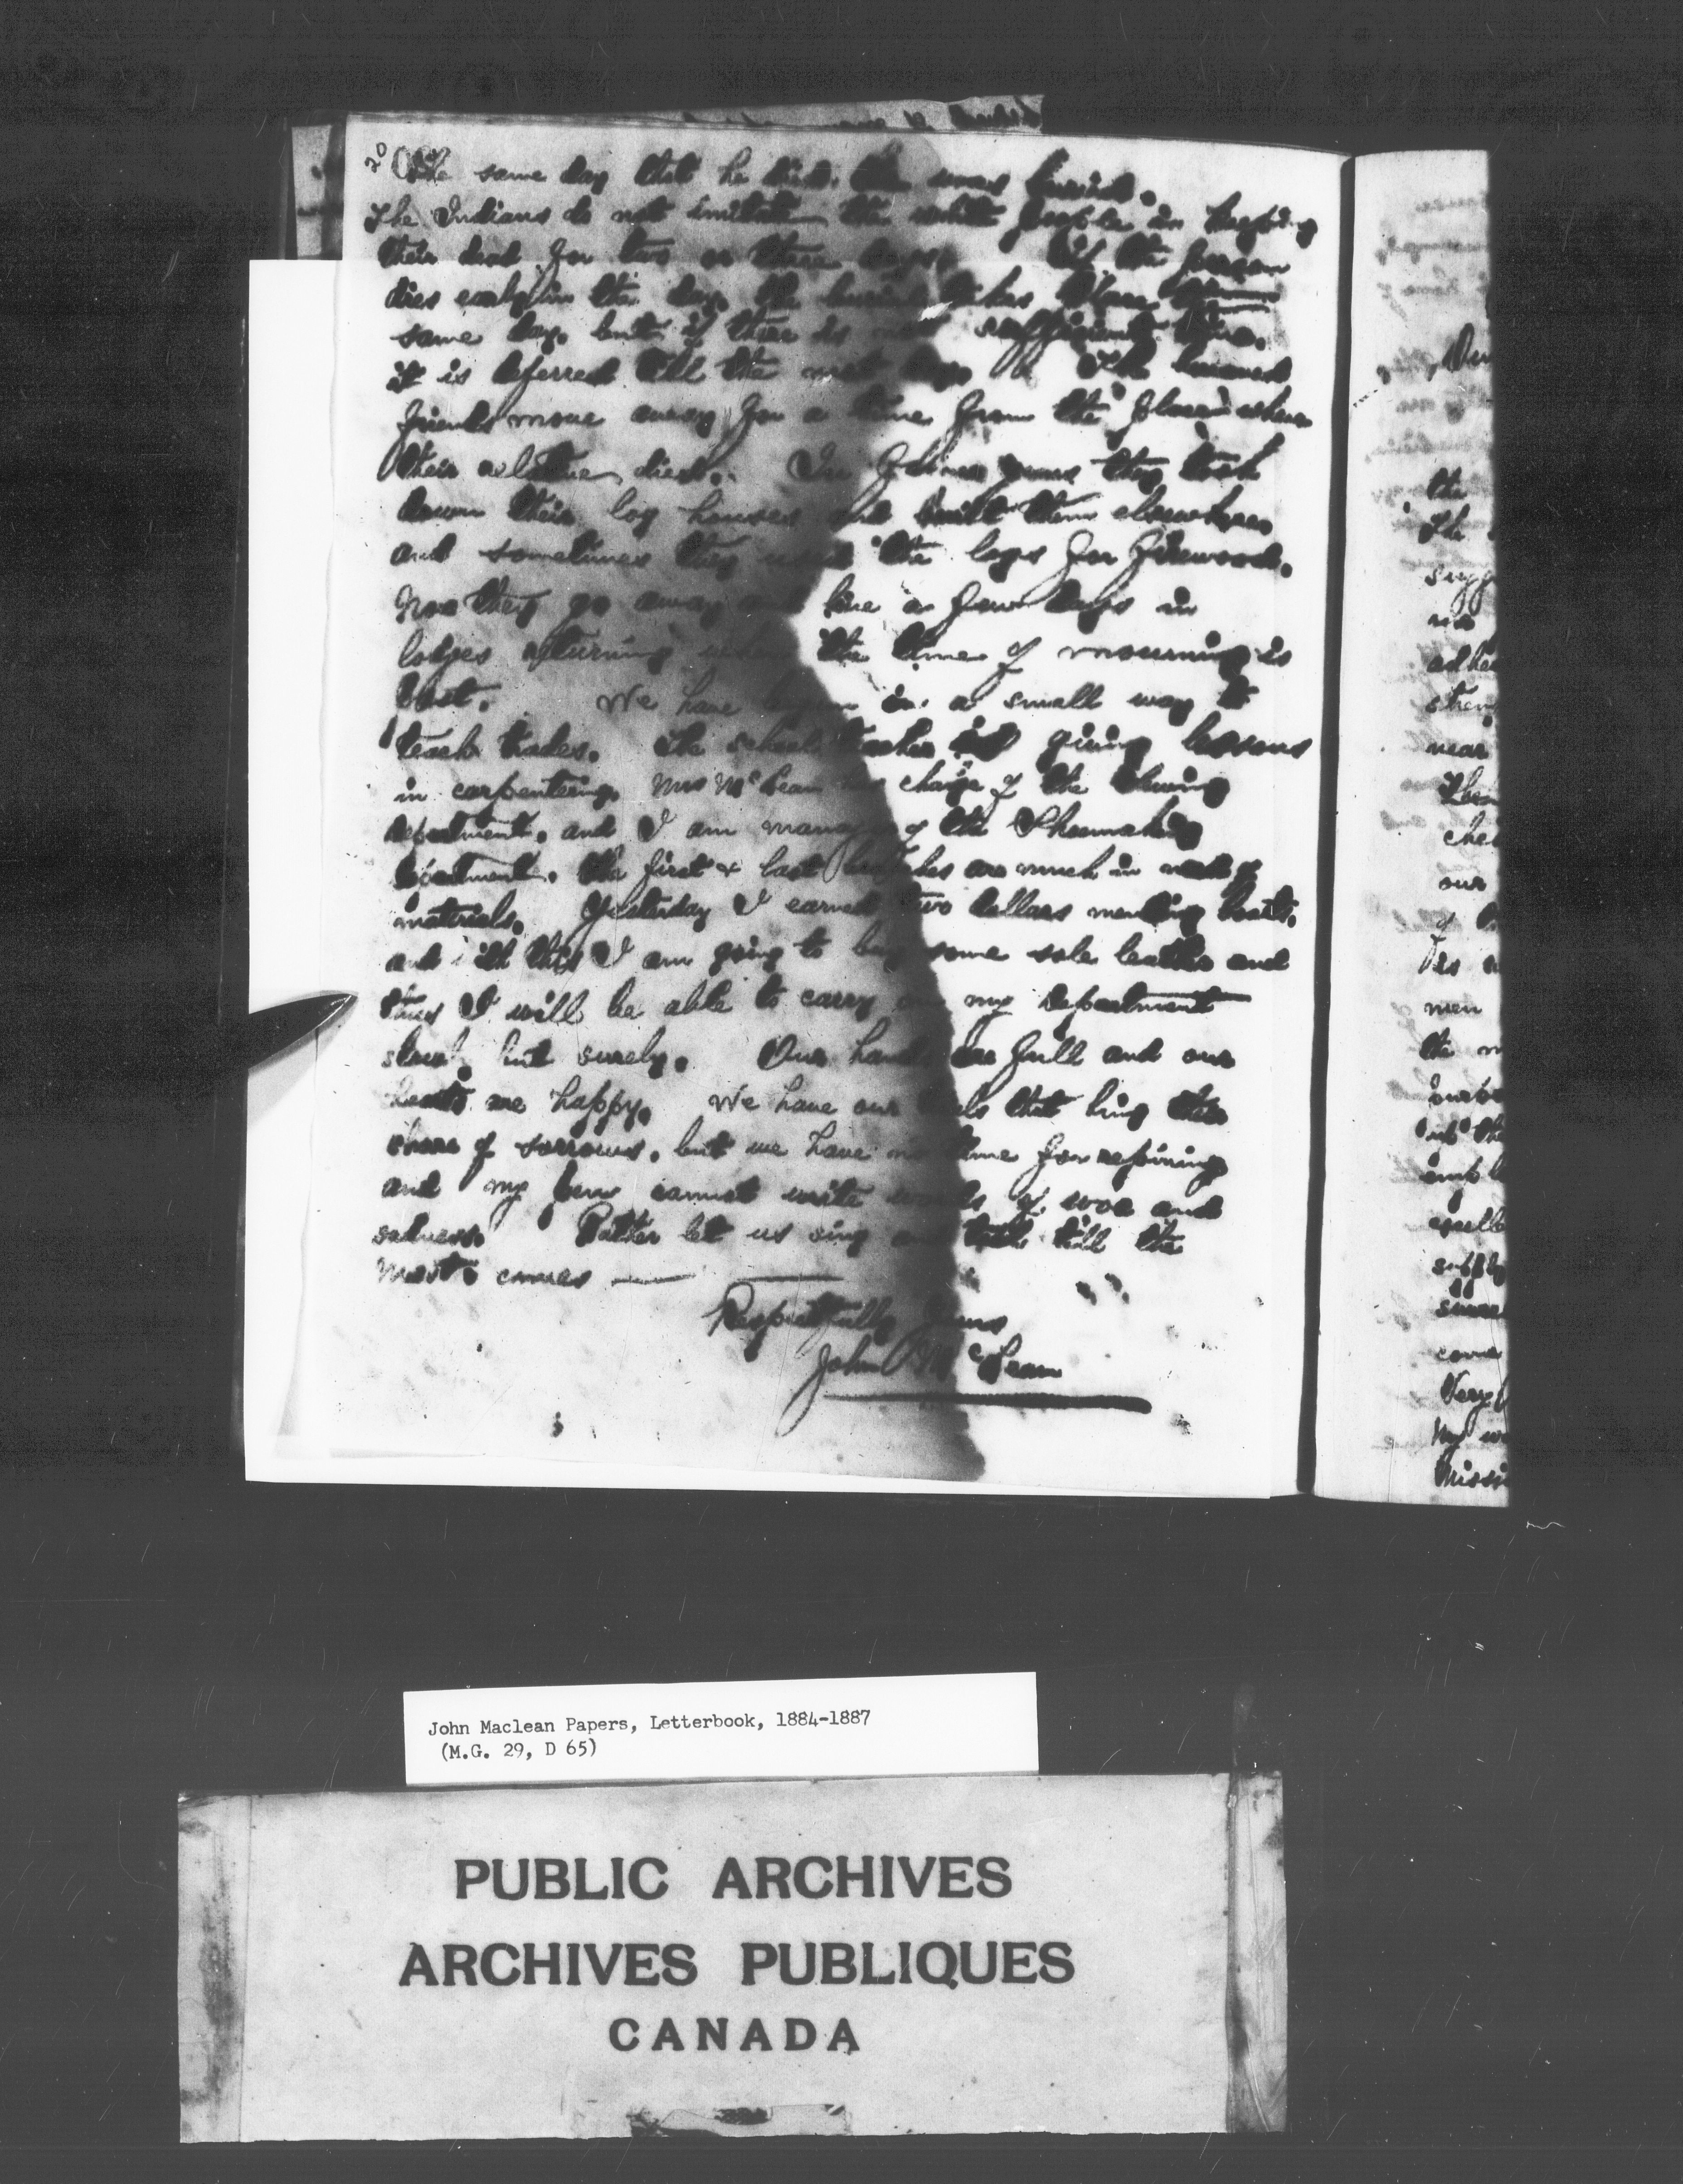 20
The same day that he died, he was buried.
The Indians do not imitate the white people in keeping
their dead for two or three days. If the person
dies early in the day, the burial takes place
same day, but if there is not sufficient time,
it is deferred till the next day. The bereaved
friends move away for a time from the place where
their relative died. In former years they took
down their log houses and built them elsewhere
and sometimes they used the logs for firewood.
Now they go away and live a few days in
lodges returning when the time of mourning is
past. We have begun in a small way to
teach trades. The school teacher is giving lessons
in carpentering, Mrs McLean has charge of the Sewing
department, and I am manager of the Shoemaking
department. The first & last are much in need of
materials. Yesterday I earned two dollars mending boots,
and with this I am going to buy some sole leather and
thus I will be able to carry on my department
slowly but surely. Our hands are full and our
hearts are happy. We have our trials that bring their
share of sorrows, but we have no time for repining
and my pen cannot write words of woe and
sadness. Rather let us sing and till the
Master comes
Respectfully Yours
John McLean
the
The
no
near
our
men
the
Very
My
John Maclean Papers, Letterbook, 1884-1887
(M.G. 29, D 65)
PUBLIC ARCHIVES
ARCHIVES PUBLIQUES
CANADA